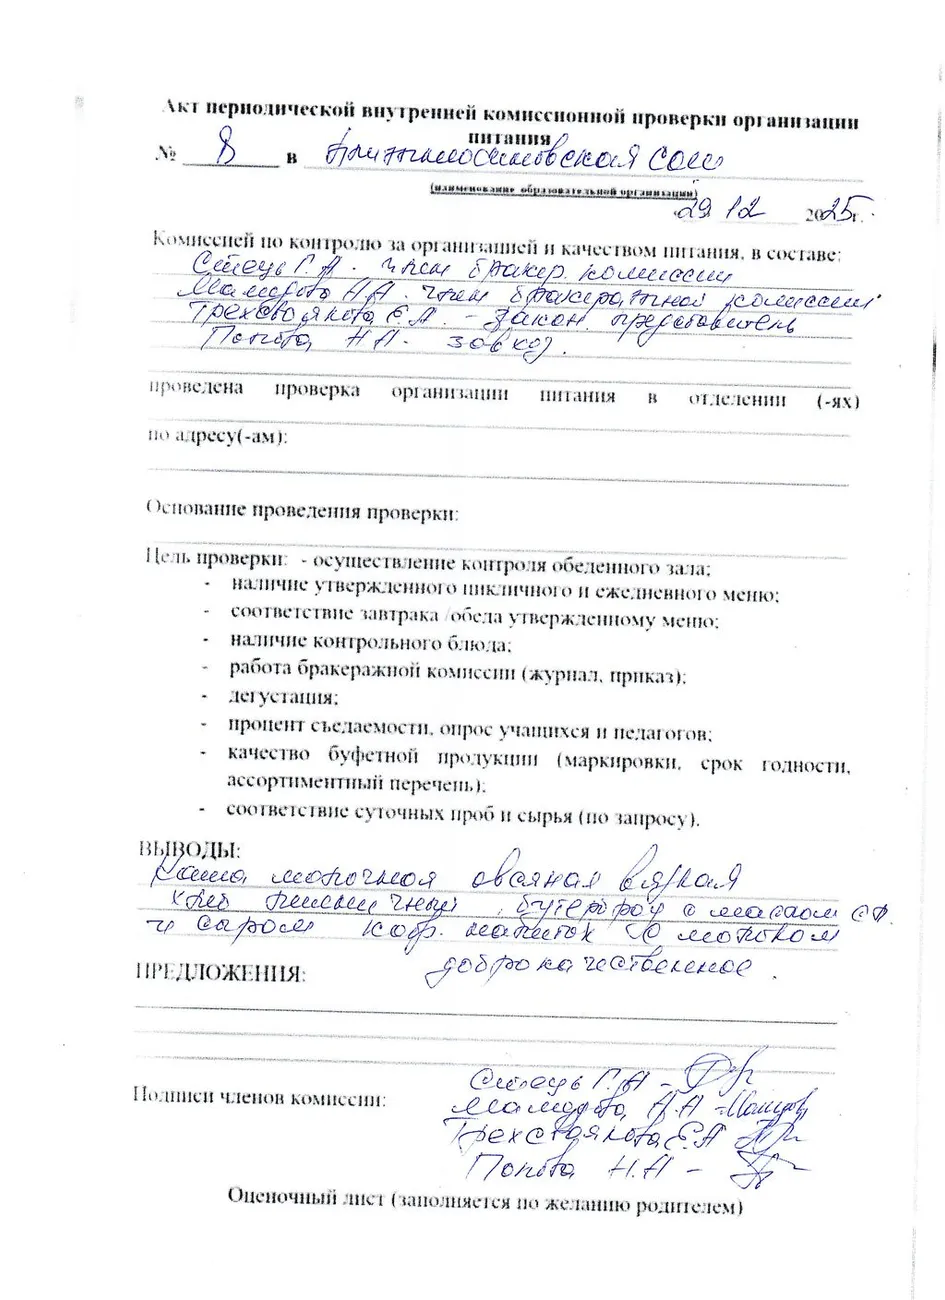 Акт периодической внутренней комиссионной проверки организации
питания
№ 8 в СОШ
(наименование образовательной организации)
29 12 2025г.
Комиссией по контролю за организацией и качеством питания, в составе:
Стець Г.А. член бракер. комиссии
Мамедова Н.А. член бракеражной комиссии
Е.А. - закон. представитель
Попова Н.А. завхоз.
проведена проверка организации питания в отделении (-ях)
по адресу(-ам):
Основание проведения проверки:
Цель проверки: - осуществление контроля обеденного зала;
- наличие утвержденного цикличного и ежедневного меню;
- соответствие завтрака /обеда утвержденному меню;
- наличие контрольного блюда;
- работа бракеражной комиссии (журнал, приказ);
- дегустация;
- процент съедаемости, опрос учащихся и педагогов;
- качество буфетной продукции (маркировки, срок годности,
ассортиментный перечень);
- соответствие суточных проб и сырья (по запросу).
ВЫВОДЫ:
Каша молочная овсяная вязкая
хлеб пшеничный, бутерброд с маслом сл.
и сыром коф. напиток с молоком
доброкачественное.
ПРЕДЛОЖЕНИЯ:
Подписи членов комиссии:
Стець Г.А -
Мамедова Н.А -
Е.А
Попова Н.А -
Оценочный лист (заполняется по желанию родителем)